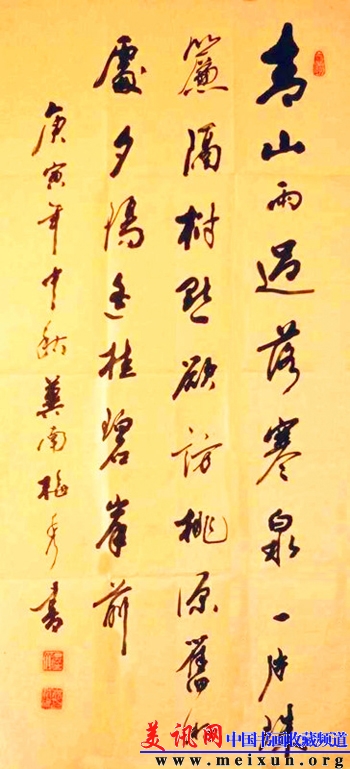 青山雨過落寒泉一片珠
簾隔树懸欲訪桃源舊
處夕陽遙挂碧峯前
庚寅年中秋冀南梅秀書
美讯网 中国书画收藏频道
www.meixuh.org